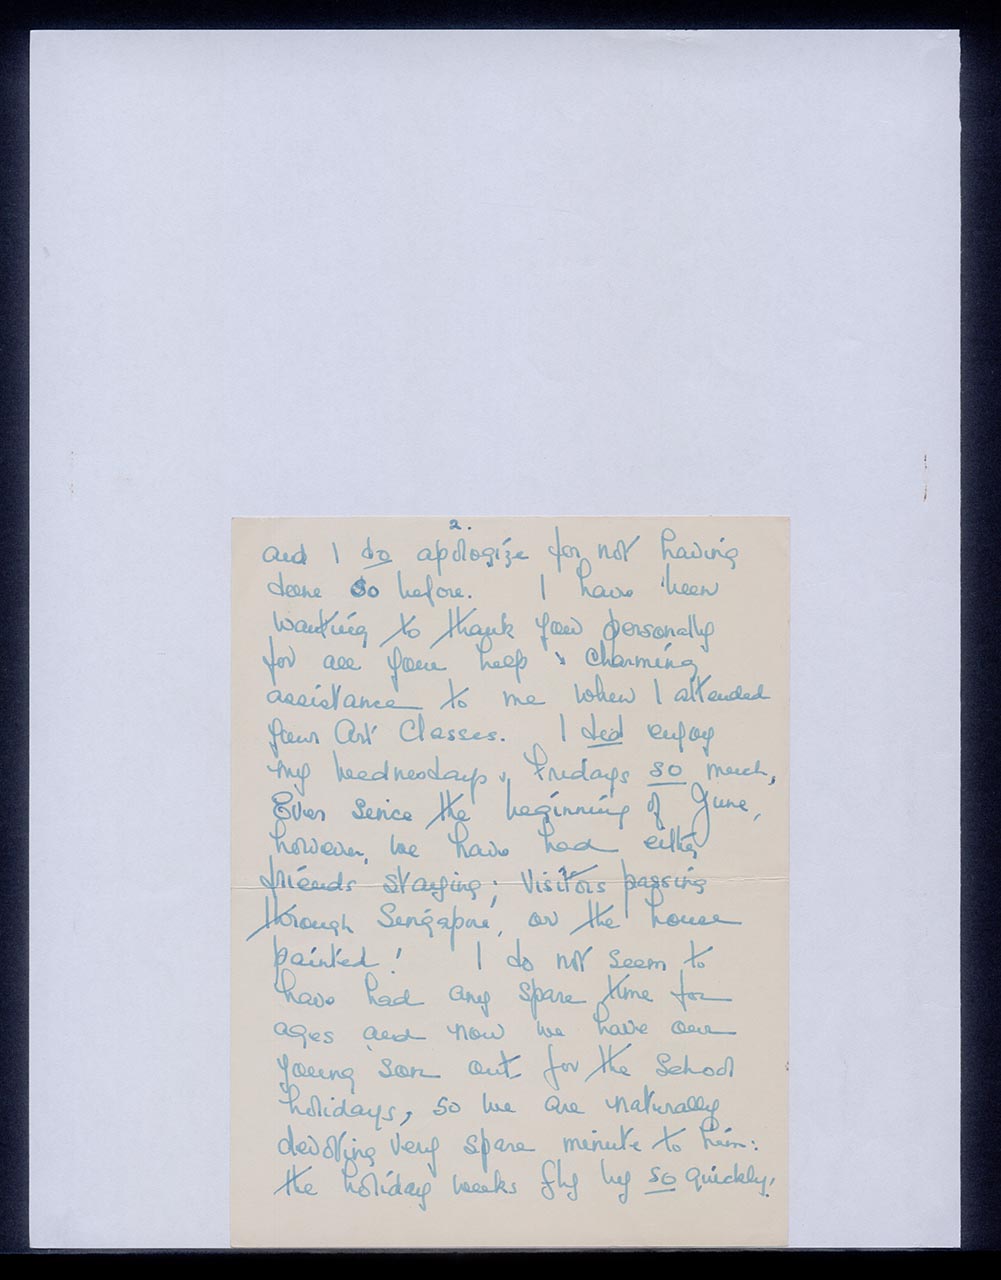 2.
and I do apologize for not having
done so before. I have been
wanting to thank you personally
for all your help & charming
assistance to me when I attended
your Art Classes. I did enjoy
my Wednesdays & Fridays so much,
Ever since the beginning of June,
however, we have had either
friends staying; visitors passing
through Singapore, or the house
painted! I do not seem to
have had any spare time for
ages and now we have our
young son out for the School
holidays, so we are naturally
devoting very spare minute to him:
the holiday weeks fly by so quickly!